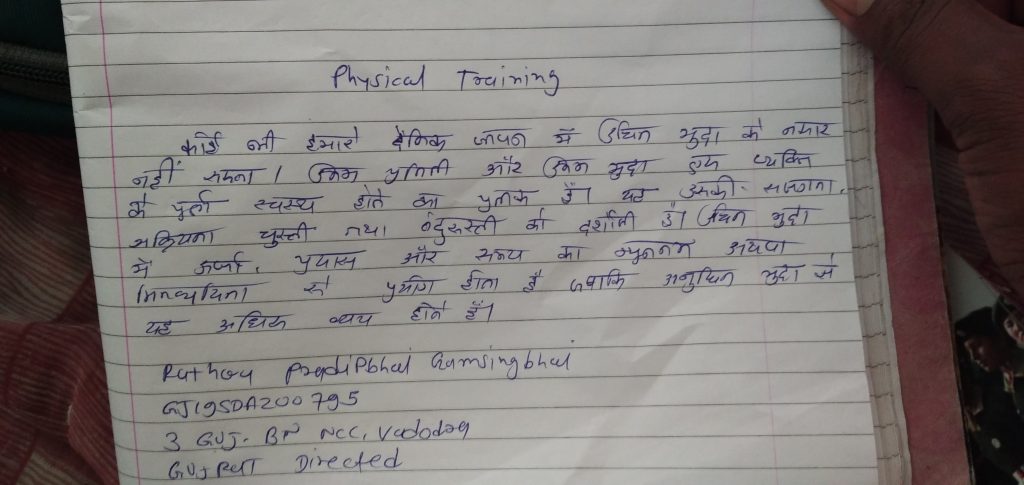 Physical Training
कोई भी हमारे दैनिक जीवन में उचित मुद्रा को नकार
नहीं सकता। उचित और उचित मुद्रा एक व्यक्ति
के पूर्ण स्वस्थ होने का प्रतीक हैं। यह उसकी सजगता,
सक्रियता चुस्ती तथा तंदुरुस्ती को दर्शाती है। उचित मुद्रा
में ऊर्जा, प्रयास और समय का न्यूनतम अथवा
मितव्ययिता से प्रयोग होता है जबकि अनुचित मुद्रा से
यह अधिक व्यय होते हैं।
Rathva Pradipbhai Ramsingbhai
GJ19SDA200795
3 GUJ. BN NCC, Vadodra
GUJ Directed